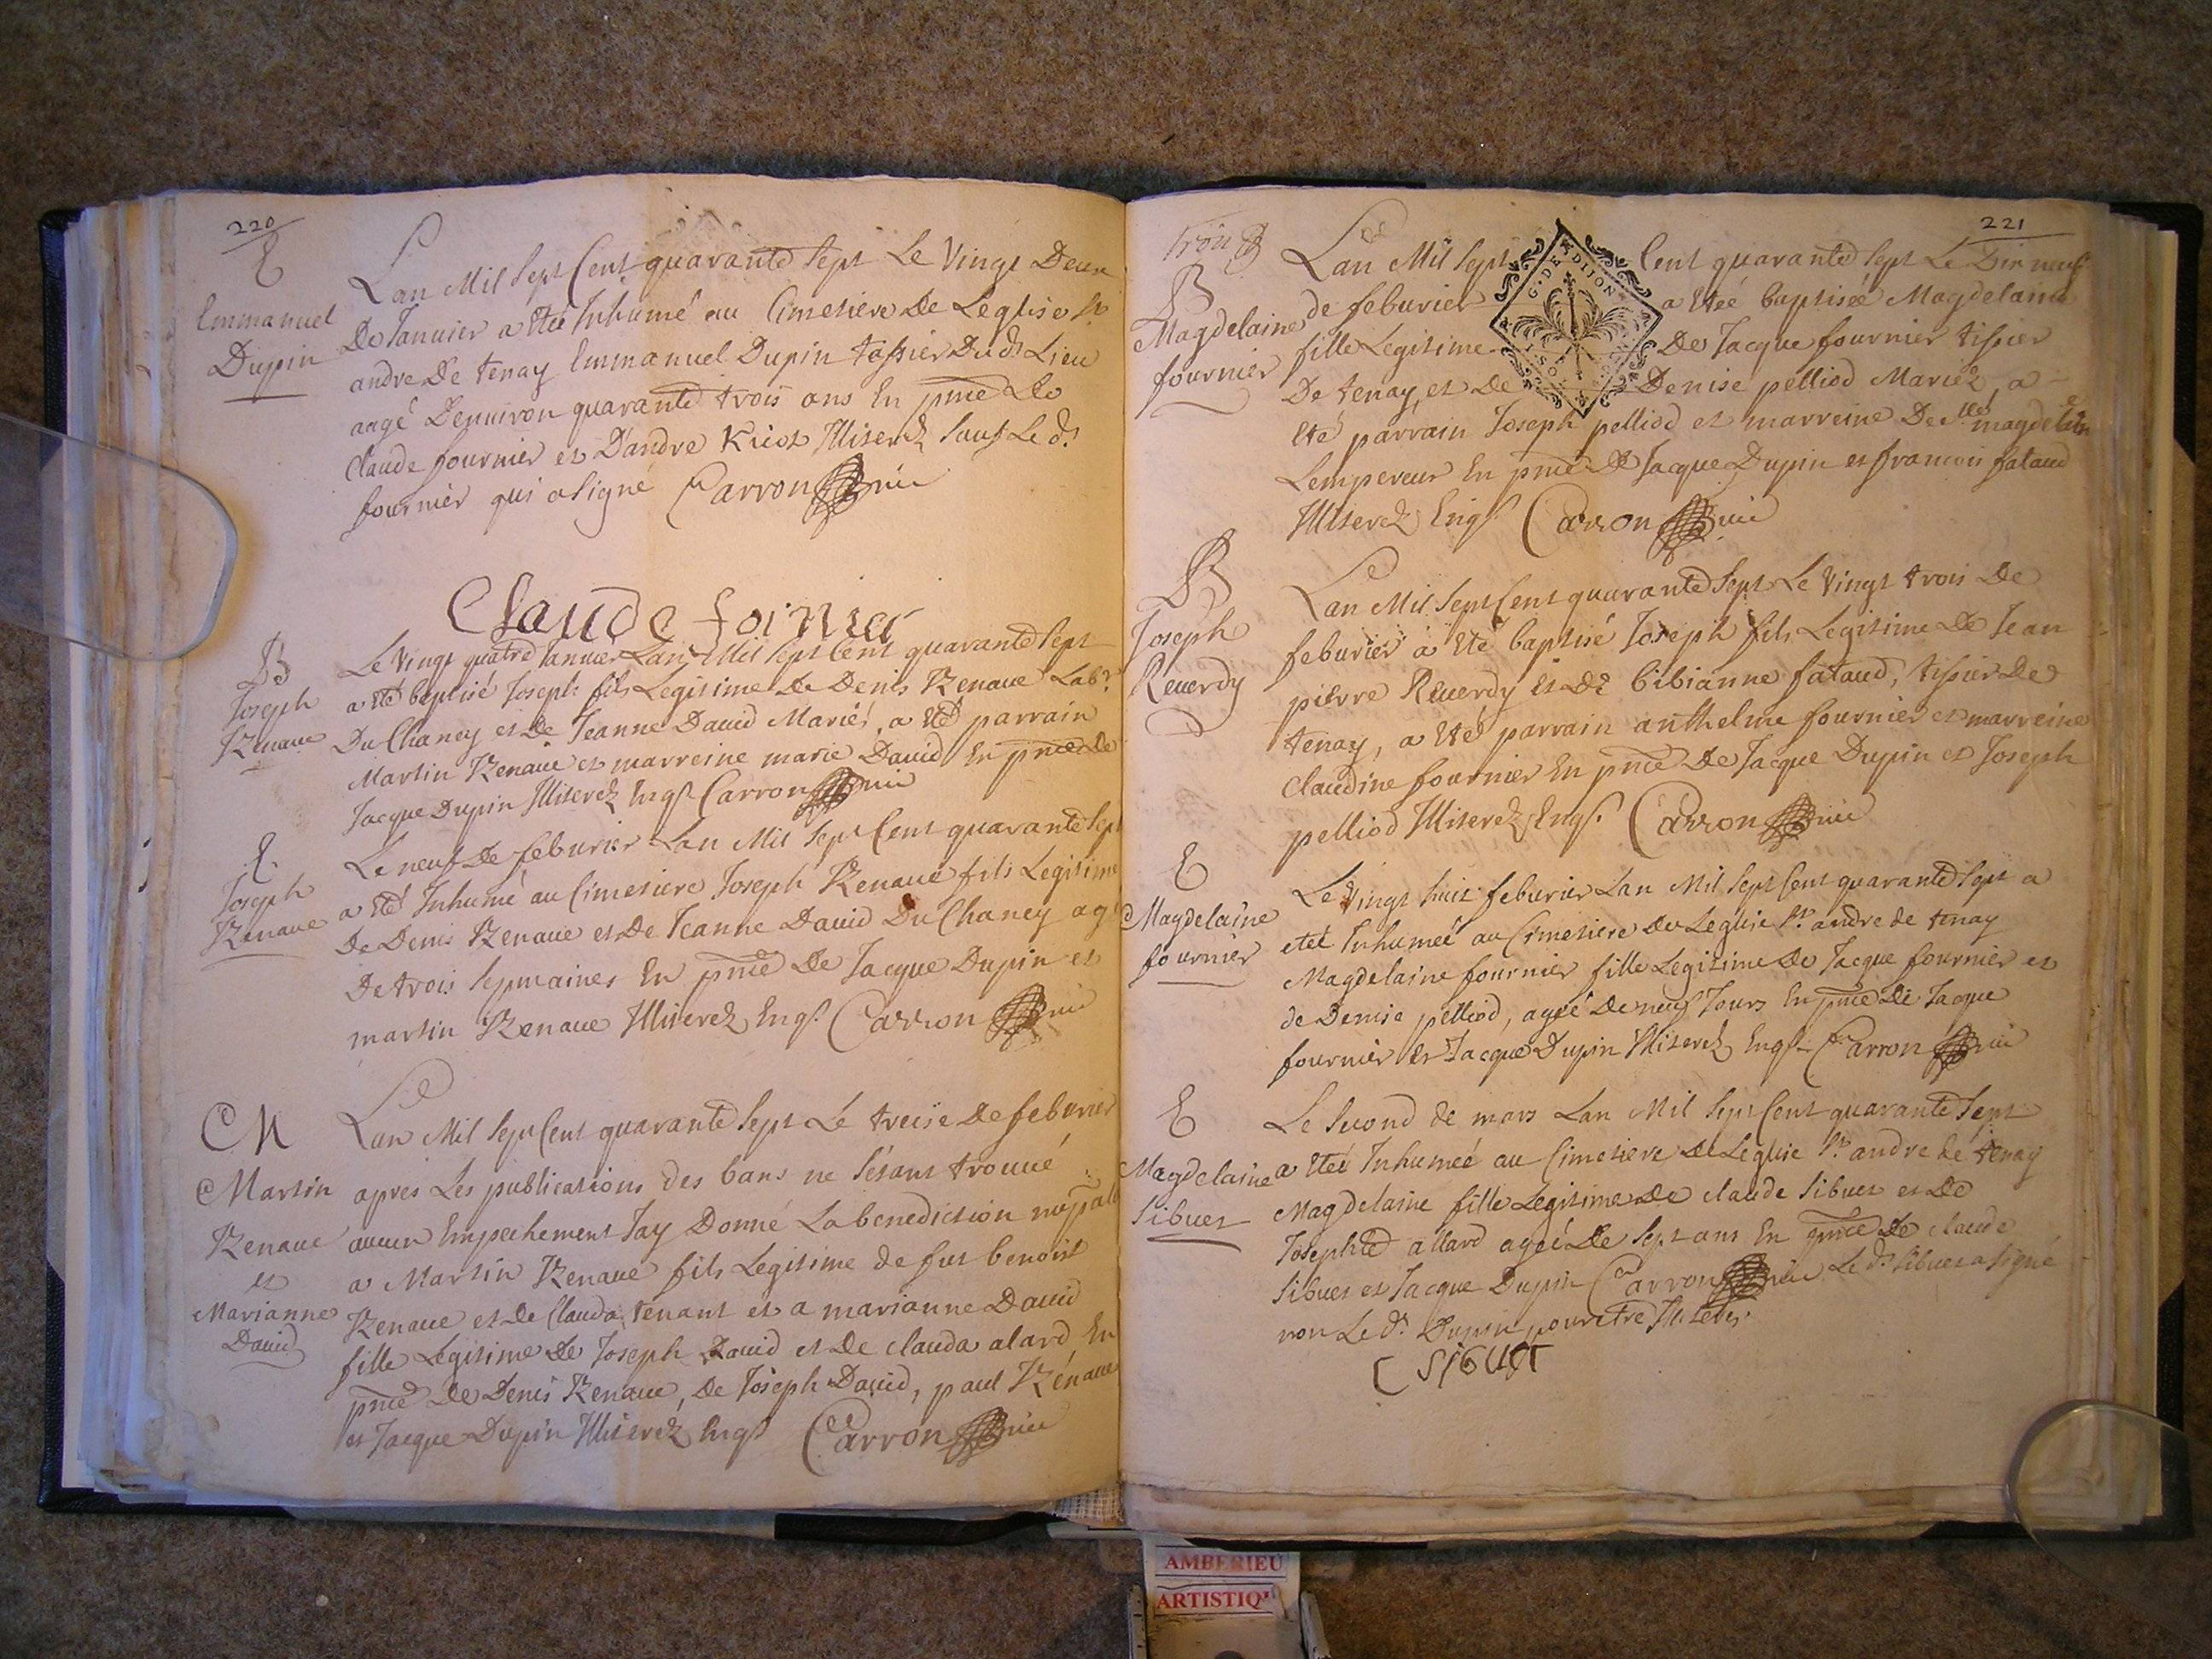 220
E
Emmanuel
Dupin
Lan Mil Sept Cent quarante Sept Le Vingt Deux
De Janvier a Eté Inhumé au Cimetiere De Leglise St
andre De tenay Emmanuel Dupin tissier Dud. Lieu
aagé Denuiron quarante trois ans En pnce De
Claude fournier et D'andre Illiterez Sauf Le d.
fournier qui a Signé Carron
Claude fornier
B
Joseph
Renaue
Le Vingt quatre Januier Lan Mil Sept Cent quarante Sept
a eté baptisé Joseph fils Legitime De Denis Renaue Labr
Du Chaney et De Jeanne Dauid Mariés, a eté parrain
Martin Renaue et marreine marie Dauid En pnce de
Jacque Dupin Illiterez Enqs. Carron
E
Joseph
Renaue
Le neuf De feburier Lan Mil Sept Cent quarante Sept
a eté Inhumé au Cimetiere Joseph Renaue fils Legitime
De Denis Renaue et De Jeanne Dauid Du Chaney agé
De trois Sepmaines En pnce De Jacque Dupin et
martin Renaue Illiterez Enqs. Carron
M
Martin
Renaue
et
Marianne
Dauid
Lan Mil Sept Cent quarante Sept Le treise De feburier
apres Les publications des bans ne Sétant trouué
aucun Empechement Jay Donné La benediction nuptiale
a Martin Renaue fils Legitime de fut benoist
Renaue et De Clauda tenant et a marianne Dauid
fille Legitime De Joseph Dauid et De clauda alard En
pnce De Denis Renaue, De Joseph Dauid, paul Rénaue
et Jacque Dupin Illiterez Enqs Carron
221
B
Magdelaine
fournier
Lan Mil Sept Cent quarante Sept Le Dix neuf
de feburier a Eteé baptiseé Magdelaine
fille Legitime De Jacque fournier tissier
De tenay, et De Denise pelliod Mariez, a
G. DE DIJON
Eté parrain Joseph pelliod et marreine De lle magdelaine
Lempereur En pnce De Jacque Dupin et francois fataud
Illiterez Enqs. Carron
B
Joseph
Reuerdy
Lan Mil Sept Cent quarante Sept Le Vingt trois De
feburier a Eté baptisé Joseph fils Legitime De Jean
pierre Reuerdy Et De bibianne fataud, tissier De
tenay, a Eté parrain anthelme fournier et marreine
Claudine fournier En pnce De Jacque Dupin et Joseph
pelliod Illiterez Enqs. Carron
E
Magdelaine
fournier
Le Vingt huit feburier Lan Mil Sept Cent quarante Sept a
eteé Inhumeé au Cimetiere De Leglise St. andre de tenay
Magdelaine fournier fille Legitime De Jacque fournier et
de Denise pelliod, ageé De neuf Jours En pnce De Jacque
fournier et Jacque Dupin Illiterez Enqs. Carron
E
Magdelaine
Sibuet
Le Second de mars Lan Mil Sept Cent quarante Sept
a Eteé Inhumeé au Cimetiere De Leglise St. andre de tenay
Magdelaine fille Legitime De claude Sibuet et De
Josephte allard ageé De Sept ans En pnce De claude
Sibuet et Jacque Dupin Carron Le d. Sibuet a Signé
non Le d. Dupin pour etre Illiteré.
C SIBUET
AMBERIEU
ARTISTIQU